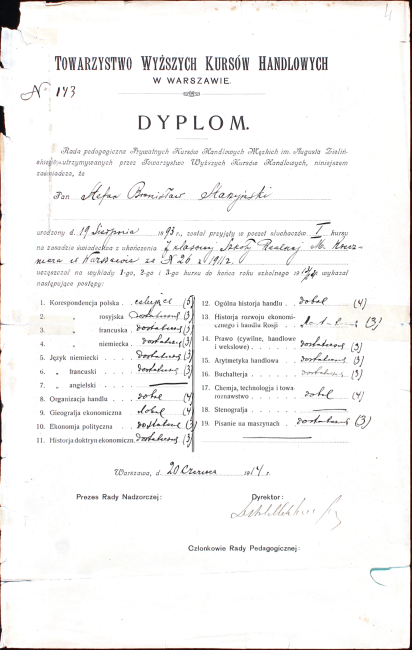 4
TOWARZYSTWO WYŻSZYCH KURSÓW HANDLOWYCH
W WARSZAWIE.
№ 173
DYPLOM.
Rada pedagogiczna Prywatnych Kursów Handlowych Męzkich im. Augusta Zieliń-
skiego, utrzymywanych przez Towarzystwo Wyższych Kursów Handlowych, niniejszem
zaświadcza, że
Pan Stefan Bronisław Starzyński
urodzony d. 19 Sierpnia 1893 r., został przyjęty w poczet słuchaczów I kursu
na zasadzie świadectwa z ukończenia 7 klasowej Szkoły Realnej M.
w Warszawie za № 26 z 1912
uczęszczał na wykłady 1-go, 2-go i 3-go kursu do końca roku szkolnego 1913/14 wykazał
następujące postępy:
1. Korespondencja polska . celujące (5)
2. „ rosyjska dostateczne (3)
3. „ francuska . dostateczne (3)
4. „ niemiecka . dostateczne (3)
5. Język niemiecki . dostateczne (3)
6. „ francuski . dostateczne (3)
7. „ angielski .
8. Organizacja handlu . dobre (4)
9. Gieografja ekonomiczna dobre (4)
10. Ekonomja polityczna . dostateczne (3)
11. Historja doktryn ekonomiczn. dostateczne (3)
12. Ogólna historja handlu . dobre (4)
13. Historja rozwoju ekonomi-
cznego i handlu Rosji dostateczne (3)
14. Prawo (cywilne, handlowe
i wekslowe) . dostateczne (3)
15. Arytmetyka handlowa . dostateczne (3)
16. Buchalterja . dostateczne (3)
17. Chemja, technologja i towa-
roznawstwo . dobre (4)
18. Stenografja .
19. Pisanie na maszynach . dostateczne (3)
Warszawa, d. 20 Czerwca 1914 r.
Prezes Rady Nadzorczej:
Dyrektor:
Członkowie Rady Pedagogicznej: